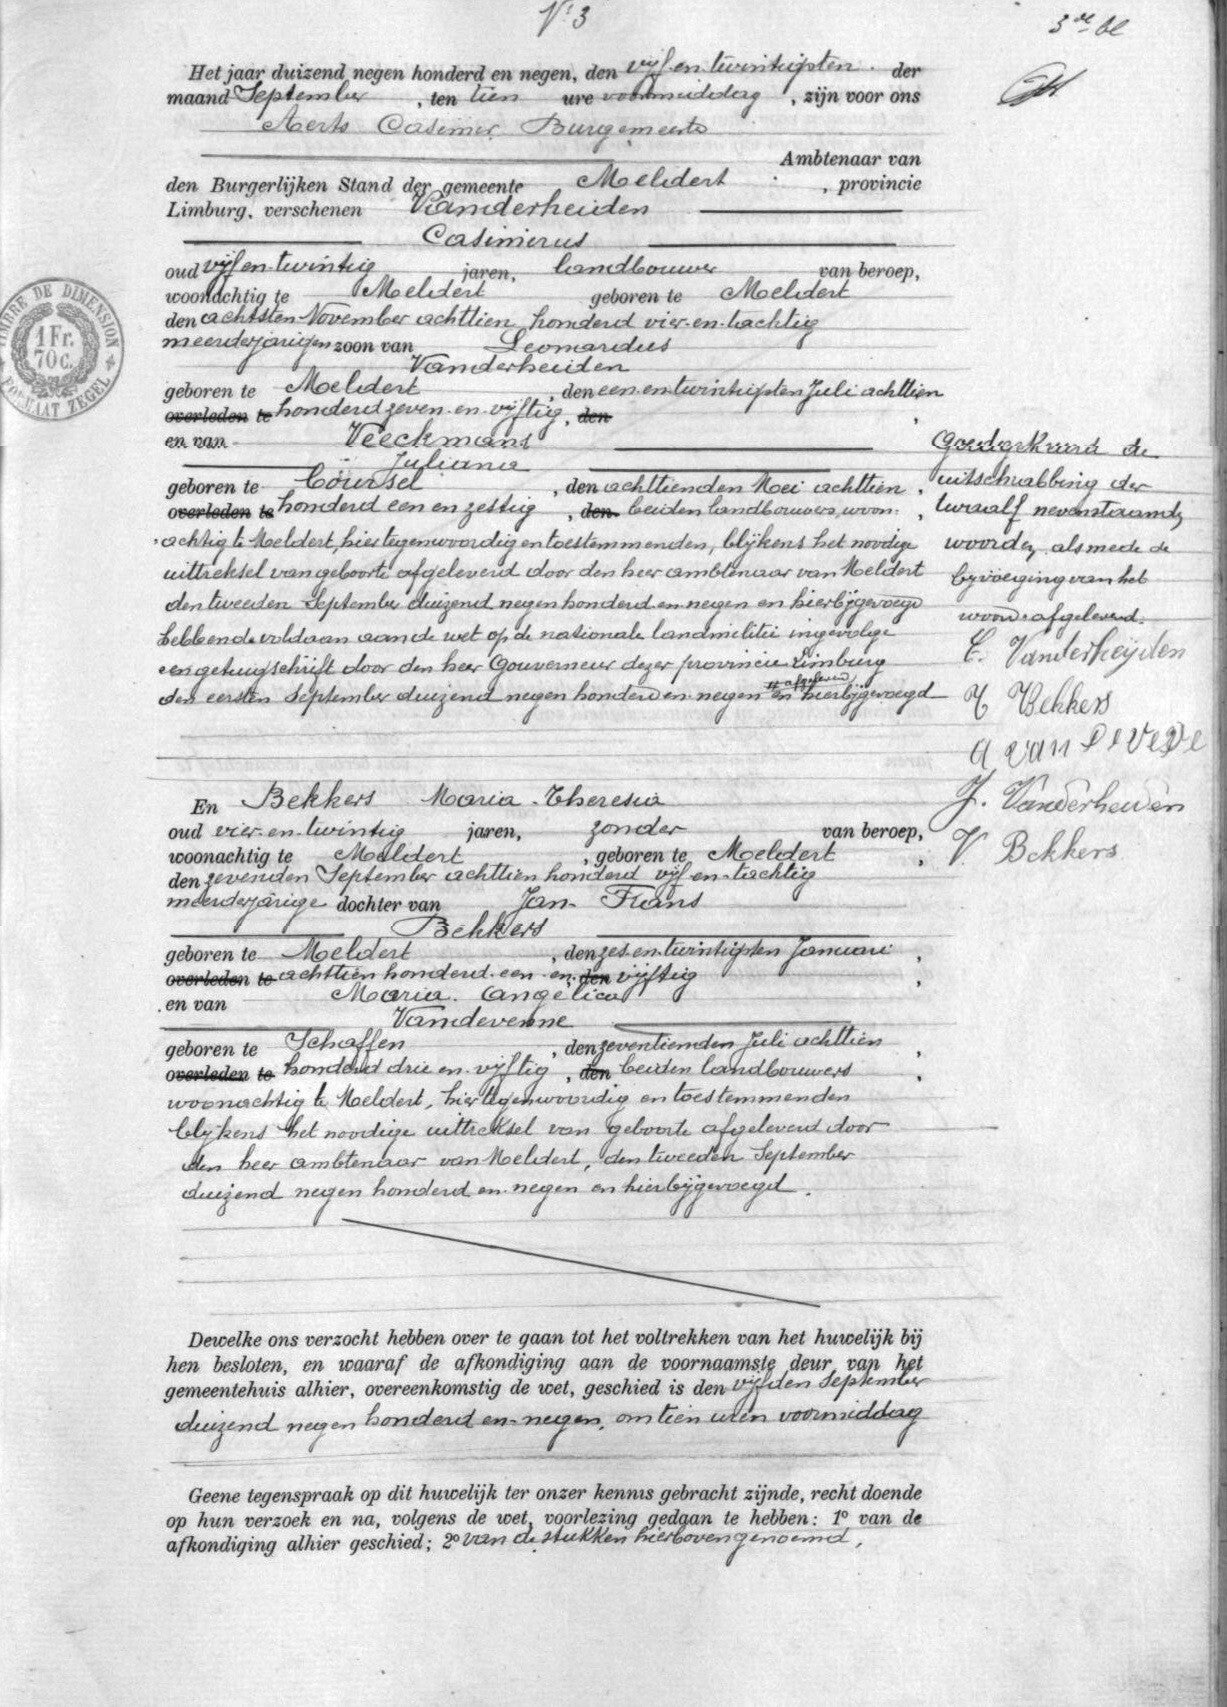 N° 3
3de bl
Het jaar duizend negen honderd en negen, den vijf en twintigsten der
maand September, ten tien ure voormiddag, zijn voor ons
Aerts Casimir Burgemeester
Ambtenaar van
den Burgerlijken Stand der gemeente Meldert, provincie
Limburg, verschenen Vanderheiden
Casimirus
oud vijf en twintig jaren, landbouwer van beroep,
woonachtig te Meldert geboren te Meldert
den achtsten November achttien honderd vier-en-tachtig
meerderjarigen zoon van Leonardus
Vanderheiden
geboren te Meldert, den een en twintigsten Juli achttien
overleden te honderd zeven-en-vijftig, den
en van Veeckmans
Juliana
geboren te Coursel, den achttienden Mei achttien,
overleden te honderd een en zestig, den beiden landbouwers, woon-
achtig te Meldert, hier tegenwoordig en toestemmenden, blijkens het noodige
uittreksel van geboorte afgeleverd door den heer ambtenaar van Meldert
den tweeden September duizend negen honderd en negen en hierbijgevoegd
hebbende voldaan aan de wet op de nationale landmilitie ingevolge
een getuigschrift door den heer Gouverneur dezer provincie Limburg
den eersten September duizend negen honderd en negen afgeleverd en hierbijgevoegd
Goedgekeurd de
uitschrabbing der
twaalf nevenstaande
woorden, alsmede de
bijvoeging van het
woord afgeleverd.
C. Vanderheijden
T Bekkers
a van De Vene
J. Vanderheiden
V Bekkers
En Bekkers Maria-Theresia
oud vier-en-twintig jaren, zonder van beroep,
woonachtig te Meldert, geboren te Meldert,
den zevenden September achttien honderd vijf en-tachtig
meerderjarige dochter van Jan-Frans
Bekkers
geboren te Meldert, den zes en twintigsten Januari,
overleden te achttien honderd een en, den vijftig,
en van Maria Angelica
Vandevenne
geboren te Schaffen, den zeventienden Juli achttien,
overleden te honderd drie en vijftig, den beiden landbouwers,
woonachtig te Meldert, hier tegenwoordig en toestemmenden
blijkens het noodige uittreksel van geboorte afgeleverd door
den heer ambtenaar van Meldert, den tweeden September
duizend negen honderd en negen en hierbijgevoegd.
Dewelke ons verzocht hebben over te gaan tot het voltrekken van het huwelijk bij
hen besloten, en waaraf de afkondiging aan de voornaamste deur van het
gemeentehuis alhier, overeenkomstig de wet, geschied is den vijfden September
duizend negen honderd en negen, om tien uren voormiddag
Geene tegenspraak op dit huwelijk ter onzer kennis gebracht zijnde, recht doende
op hun verzoek en na, volgens de wet, voorlezing gedaan te hebben: 1° van de
afkondiging alhier geschied; 2° van de stukken hierboven genoemd,
TIMBRE DE DIMENSION
1 Fr.
70 c.
FORMAAT ZEGEL